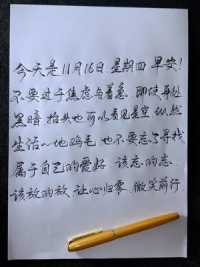 今天是11月16日 星期四 早安!
不要过于焦虑与着急 即使身处
黑暗 抬头也可以看见星空 纵然
生活一地鸡毛 也不要忘了寻找
属于自己的爱好 该忘的忘
该放的放 让心归零 微笑前行